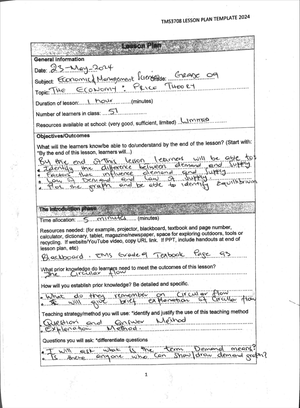 TMS3708 LESSON PLAN TEMPLATE 2024
Lesson Plan
General information
Date: 23-May-2024
Subject: Economic Management Grade 09
Topic: The Economy: Price Theory
Duration of lesson: 1 hour (minutes)
Number of learners in class: 51
Resources available at school: (very good, sufficient, limited) Limited
Objectives/Outcomes
What will the learners know/be able to do/understand by the end of the lesson? (Start with:
"By the end of this lesson, learners will...)
By the end of this lesson learners will be able to:
• Identify the difference between demand and supply
• Factors that influence demand and supply
• Law of demand and law of supply
• Plot the graph and be able to identify Equilibrium
The introduction phase
Time allocation: 5 minutes (minutes)
Resources needed: (for example, projector, blackboard, textbook and page number,
calculator, dictionary, tablet, magazine/newspaper, space for exploring outdoors, tools or
recycling. If website/YouTube video, copy URL link. If PPT, include handouts at end of
lesson plan, etc)
Blackboard - EMS Grade 9 Textbook Page 93
What prior knowledge do learners need to meet the outcomes of this lesson?
The Circular flow
How will you establish prior knowledge? Be detailed and specific.
• What do they remember on Circular flow
• I will give brief explanation of Circular flow
Teaching strategy/method you will use: *identify and justify the use of this teaching method
• Question and Answer Method
• Explanation Method.
Questions you will ask: *differentiate questions
• I will ask what is the term Demand means?
• Is there anyone who can show/draw demand graph?
1